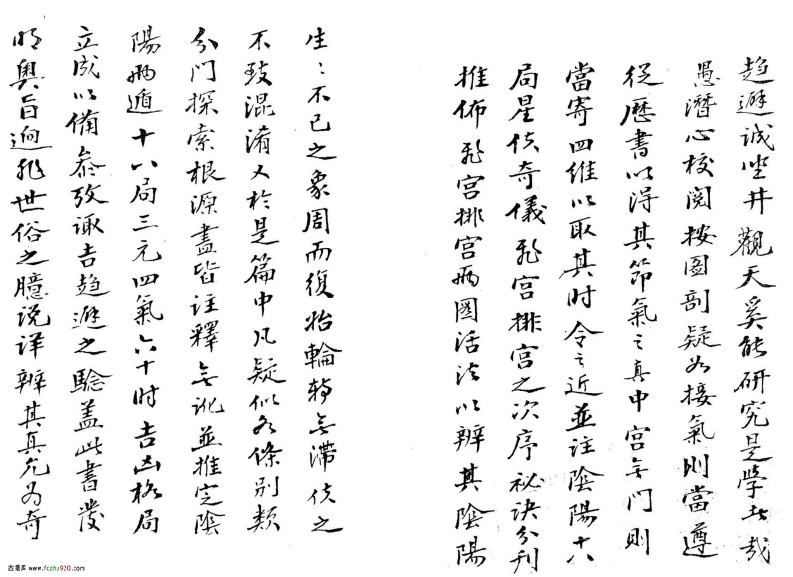 趋避诚坐井觀天奚能研究是學也哉
愚潛心校閱按图剖疑如接氣則當遵
從歷書以得其節氣之真中宫無門則
當寄四维以取其时令之近並註陰陽十八
局星使奇儀飛宫排宫之次序秘诀分刊
推佈飛宫排宫兩圖活法以辨其陰陽
生〻不已之象周而復始輪轉無滞使之
不致混淆又於是篇中凡疑似各條别類
分门探索根源盡皆註釋無訛並推定陰
陽兩遁十八局三元四氣六十时吉凶格局
立成以備叅攷諏吉趋避之騐盖此書發
明奥旨迥非世俗之臆说详辨其真允为奇
古易库 www.fczhu920.com